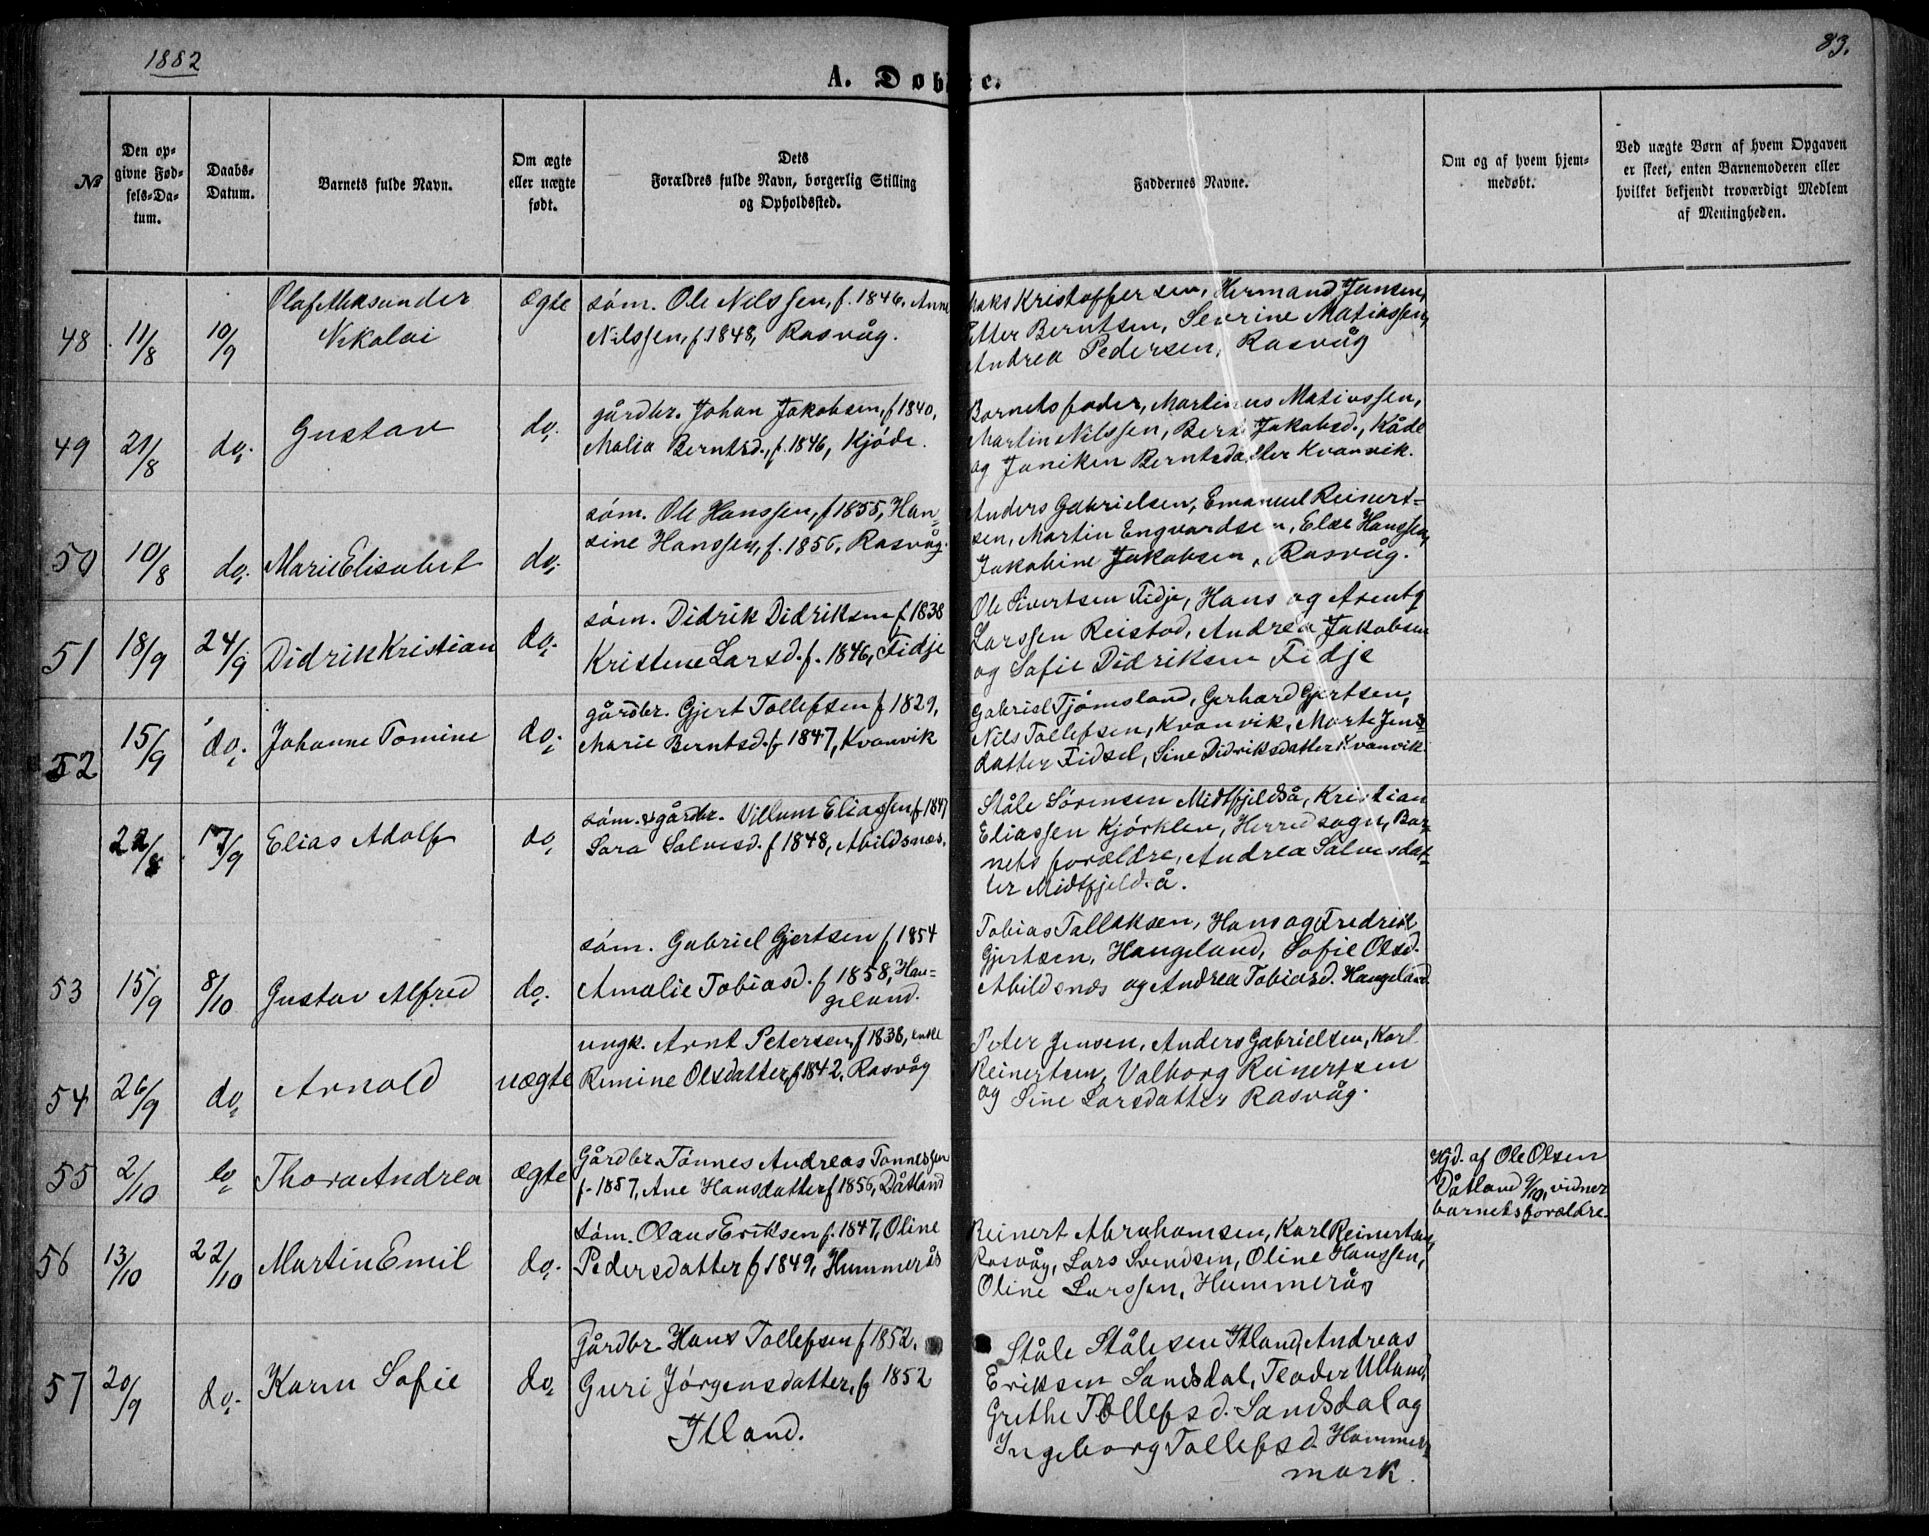 1882
83.
A. Døbte.
№
Den op-
givne Fød-
sels-Da-
tum.
Daabs-
Datum.
Barnets fulde Navn.
Om ægte
eller uægte
født.
Dets
Forældres fulde Navn, borgerlig Stilling
og Opholdssted.
Faddernes Navne.
Om og af hvem hjem-
medøbt.
Ved uægte Børn af hvem Opgaven
er skeet, enten Barnemoderen eller
hvilket bekjendt troværdigt Medlem
af Menigheden.
48 11/8 10/9
Olaf Aleksander
Nikolai
ægte
søm. Ole Nilssen, f. 1846, Anne
Nilssen, f. 1848, Rasvåg.
Kristoffersen, Hermand Jensen,
Petter Berntsen, Severine Matiassen,
Andrea Pedersen, Rasvåg
49 21/8 do. Gustav do.
gårdbr. Johan Jakobsen, f 1840,
Malia Berntsd., f. 1846, Kjøde.
Barnets fader, Martinus Matiassen,
Martin Nilssen, Berte Jakobsd., Kåde
og Janiken Berntsdatter Kvanvik.
50 10/8 do. Marie Elisabet do.
søm. Ole Hanssen, f 1855, Han-
sine Hanssen, f. 1856, Rasvåg.
Anders Gabrielsen, Emanuel Reinert-
sen, Martin Engvardsen, Else Hanssen,
Jakobine Jakobsen, Rasvåg.
51 18/9 24/9 Didrik Kristian do.
søm. Didrik Didriksen f 1838
Kristine Larsd. f. 1846, Fidje
Ole Sivertsen Fidje, Hans og Arent
Larssen Reistad, Andrea Jakobsen
og Safie Didriksen Fidje
52 15/9 do. Johanne Tomine do.
gårdbr. Gjert Tollefsen f 1829,
Marie Berntsd. f 1847, Kvanvik
Gabriel Tjømsland, Gerhard Gjertsen,
Nils Tollefsen, Kvanvik, Marte Jens-
datter Fidsel, Sine Didriksdatter Kvanvik
22/8 17/9 Elias Adolf do.
søm. & gårdbr. Villum Eliassen f 1847
Sara Salvesd. f 1848, Abildsnæs.
Ståle Sørensen Midtfjeldså, Kristian
Eliassen Kjørklev, Herred sogn, Bar-
nets forældre, Andrea Salvesdat-
ter Midtfjeldså.
53 15/9 8/10 Gustav Alfred do.
søm. Gabriel Gjertsen f 1854
Amalie Tobiasd. f 1858, Hau-
geland.
Tobias Tallaksen, Hans og Fredrik
Gjertsen, Haugeland, Sofie Olsd.
Abildsnæs og Andrea Tobiasd. Haugeland
54 26/9 do. Arnold uægte
ungk. Arnt Petersen, f 1838, enke
Remine Olsdatter, f 1842, Rasvåg
Peter Jensen, Anders Gabrielsen, Karl
Reinertsen, Valborg Reinertsen
og Sine Larsdatter Rasvåg.
55 2/10 do. Thora Andrea ægte
Gårdbr. Tønnes Andreas Tønnessen
f. 1857, Ane Hansdatter f 1856, Dåtland
Hjd. af Ole Olsen
Dåtland 9/10, vidner
barnets forældre.
56 13/10 22/10 Martin Emil do.
søm. Olaus Eriksen f. 1847, Oline
Pedersdatter f 1849, Hummerås
Reinert Abrahamsen, Karl Reinertsen,
Rasvåg, Lars Svendsen, Oline Hanssen,
Oline Larssen, Hummerås
57 20/9 do. Karen Sofie do.
Gårdbr. Hans Tollefsen f 1852,
Guri Jørgensdatter, f 1852
Itland.
Ståle Stålesen Itland, Andreas
Eriksen Sandsdal, Teodor Ulland,
Grethe Tollefsd. Sandsdal og
Ingeborg Tollefsd. Hammer-
mark.